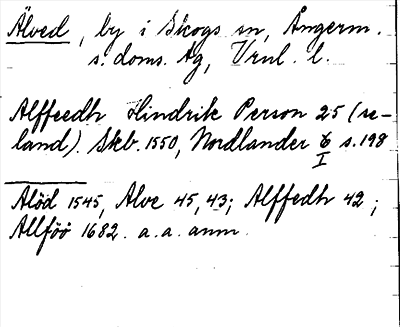 Älved, by i Skogs sn, Ångerm.
s. doms. tg, Vrnl. l.
Alffeedh Hindrik Person 25 (se-
land). Skb. 1550, Nordlander 6 s. 198
I
Alöd 1545, Alve 45, 43; Alffedh 42;
Allföö 1682. a. a. anm.